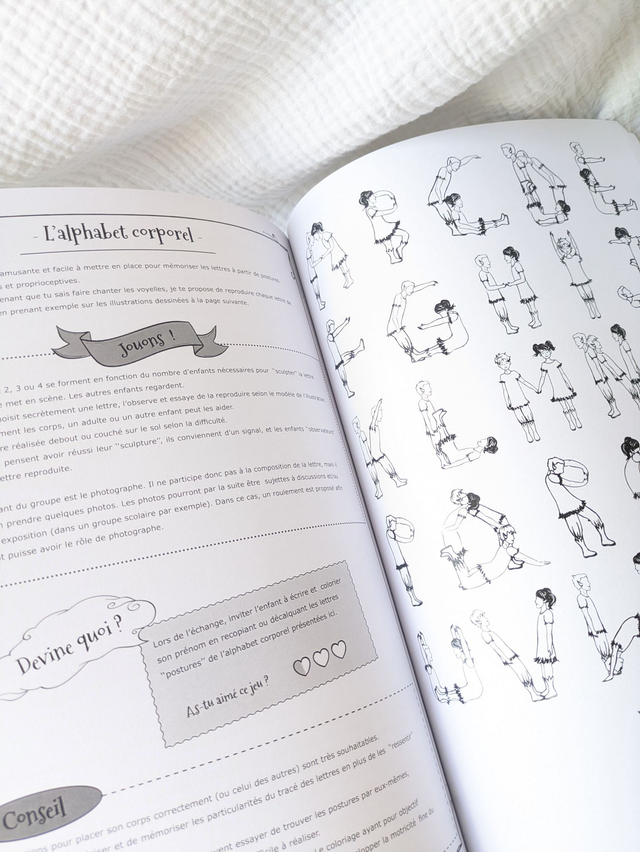 - L'alphabet corporel -
amusante et facile à mettre en place pour mémoriser les lettres à partir de postures
s et proprioceptives.
enant que tu sais faire chanter les voyelles, je te propose de reproduire chaque lettre de
en prenant exemple sur les illustrations dessinées à la page suivante.
Jouons !
, 2, 3 ou 4 se forment en fonction du nombre d'enfants nécessaires pour "sculpter" la lettre
e met en scène. Les autres enfants regardent.
oisit secrètement une lettre, l'observe et essaye de la reproduire selon le modèle de l'illustration
ment les corps, un adulte ou un autre enfant peut les aider.
re réalisée debout ou couché sur le sol selon la difficulté.
pensent avoir réussi leur "sculpture", ils conviennent d'un signal, et les enfants "observateurs
ettre reproduite.
ant du groupe est le photographe. Il ne participe donc pas à la composition de la lettre, mais il
n prendre quelques photos. Les photos pourront par la suite être sujettes à discussions et/ou
exposition (dans un groupe scolaire par exemple). Dans ce cas, un roulement est proposé afin
t puisse avoir le rôle de photographe.
Devine quoi ?
Lors de l'échange, inviter l'enfant à écrire et colorier
son prénom en recopiant ou décalquant les lettres
"postures" de l'alphabet corporel présentées ici.
As-tu aimé ce jeu ?
Conseil
ons pour placer son corps correctement (ou celui des autres) sont très souhaitables.
iser et de mémoriser les particularités du tracé des lettres en plus de les "ressentir"
ment essayer de trouver les postures par eux-mêmes,
cile à réaliser.
Le coloriage ayant pour objectif
lopper la motricité fine du